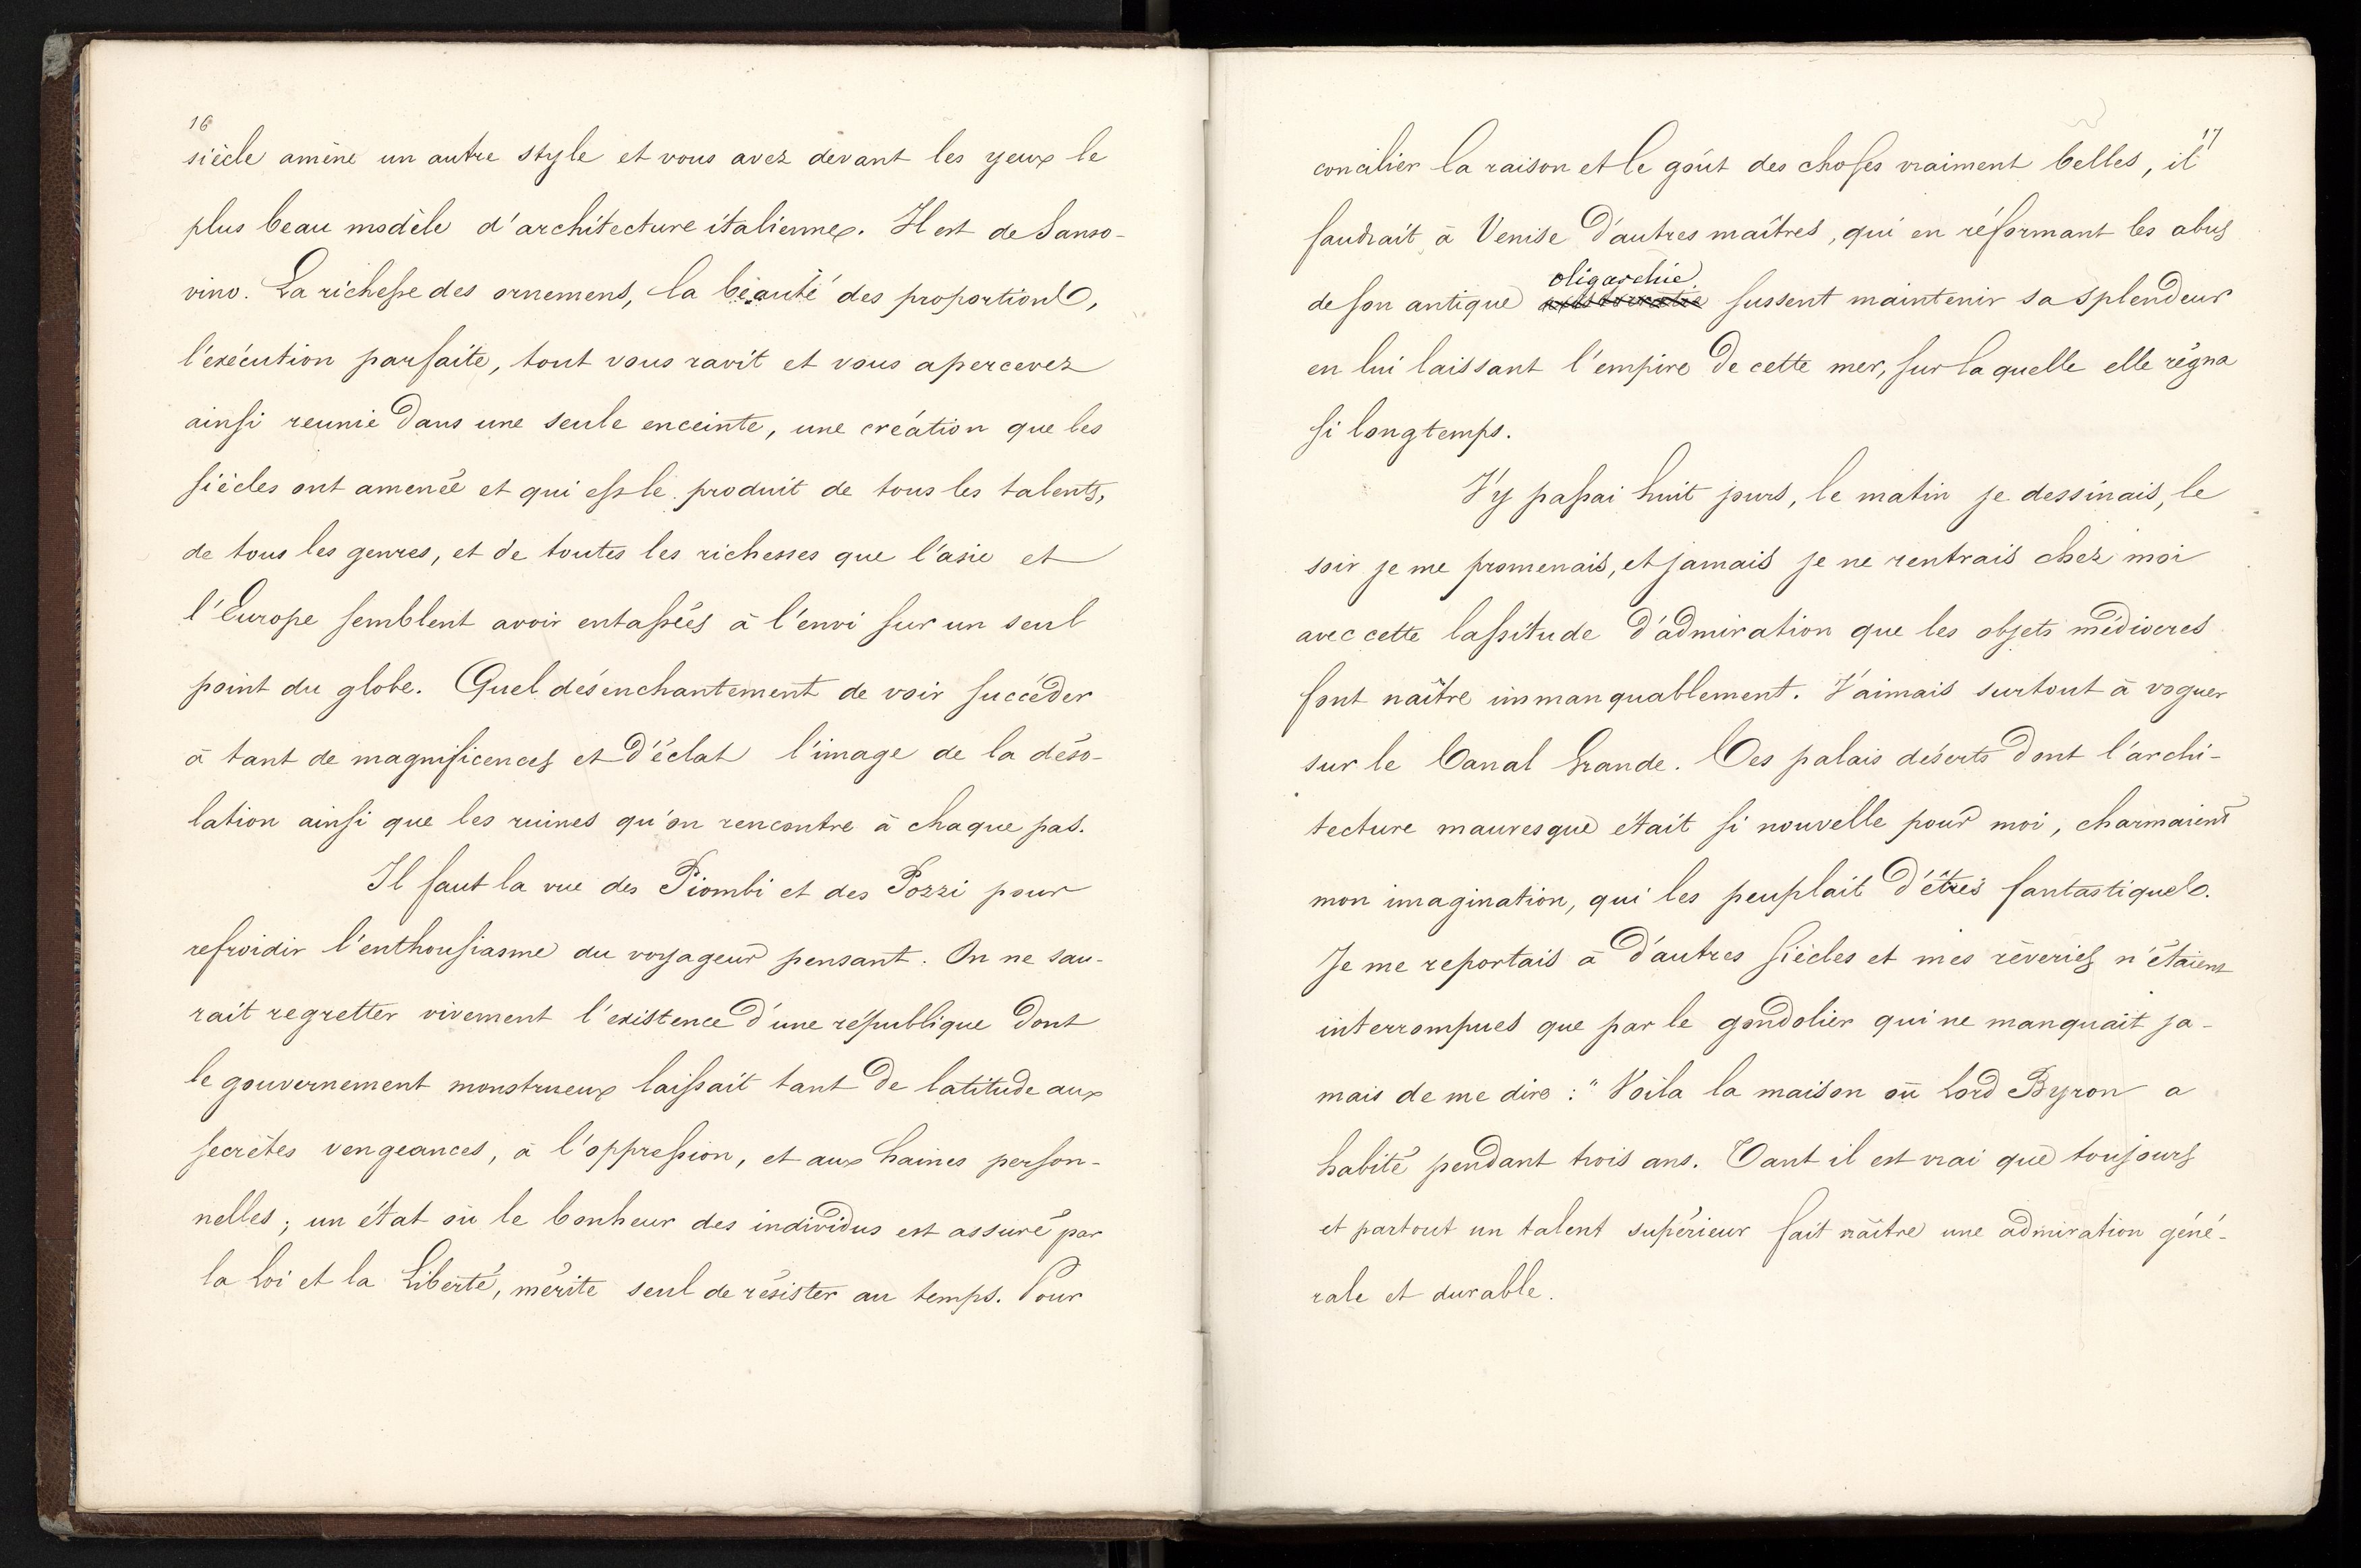 16
siècle amène un autre style et vous avez devant les yeux le
plus beau modèle d'architecture italienne. Il est de Sanso-
vino. La richesse des ornemens, la beauté des proportions,
l'exécution parfaite, tout vous ravit et vous apercevez
ainsi reunie dans une seule enceinte, une création que les
siècles ont amenée et qui est le produit de tous les talents,
de tous les genres, et de toutes les richesses que l'asie et
l'Europe semblent avoir entassées à l'envi sur un seul
point du globe. Quel désenchantement de voir succéder
à tant de magnificences et d'éclat l'image de la déso-
lation ainsi que les ruines qu'on rencontre à chaque pas.
Il faut la vue des Piombi et des Pozzi pour
refroidir l'enthousiasme du voyageur pensant. On ne sau-
rait regretter vivement l'existence d'une république dont
le gouvernement monstrueux laissait tant de latitude aux
secrètes vengeances, à l'oppression, et aux haines person-
nelles ; un état où le bonheur des individus est assuré par
la Loi et la Liberté, mérite seul de résister au temps. Pour
17
concilier la raison et le goût des choses vraiment belles, il
faudrait à Venise d'autres maîtres, qui en réformant les abus
oligarchie
de son antique aristocratie sussent maintenir sa splendeur
en lui laissant l'empire de cette mer, sur laquelle elle régna
si longtemps.
J'y passai huit jours, le matin je dessinais, le
soir je me promenais, et jamais je ne rentrais chez moi
avec cette lassitude d'admiration que les objets médiocres
font naître immanquablement. J'aimais surtout à voguer
sur le Canal Grande. Ces palais déserts dont l'archi-
tecture mauresque était si nouvelle pour moi, charmaient
mon imagination, qui les peuplait d'êtres fantastiques.
Je me reportais à d'autres siècles et mes rêveries n'étaient
interrompues que par le gondolier qui ne manquait ja-
mais de me dire : " Voila la maison où Lord Byron a
habité pendant trois ans. Tant il est vrai que toujours
et partout un talent supérieur fait naître une admiration géné-
rale et durable.